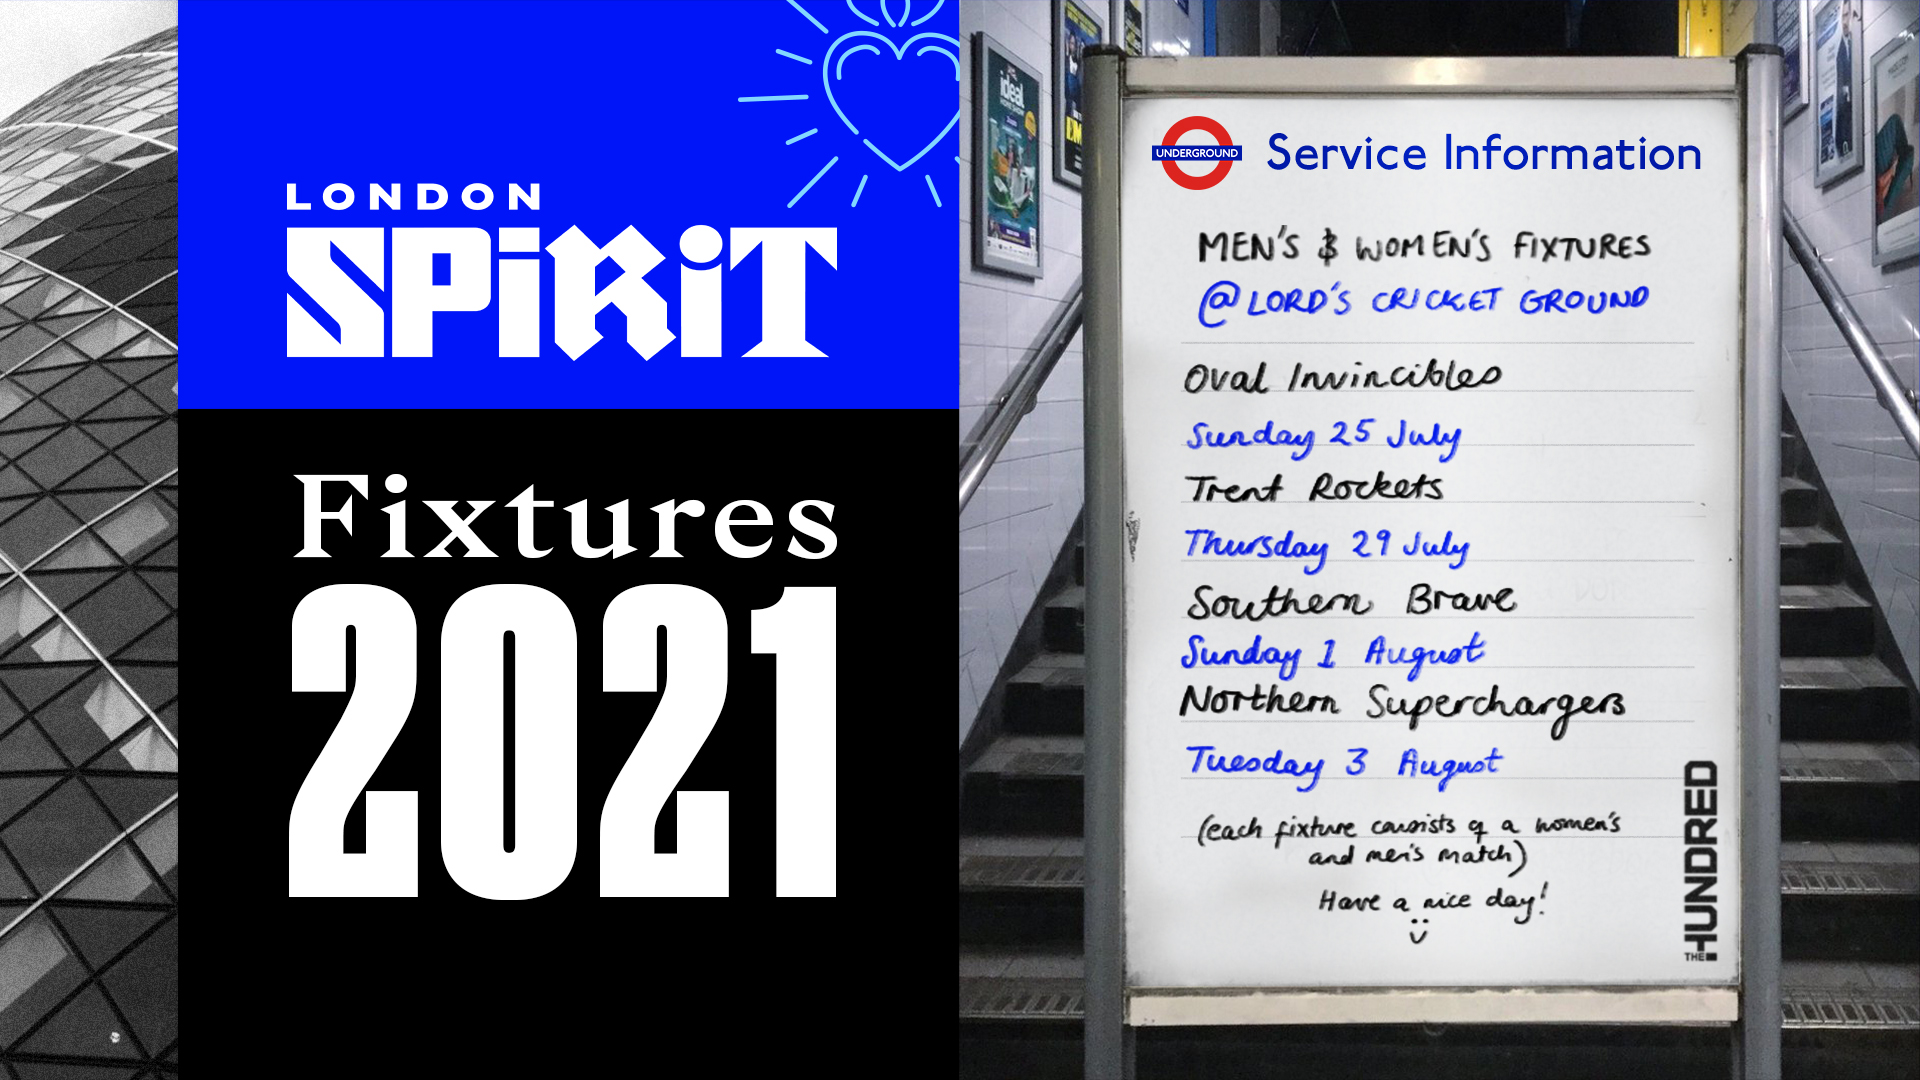 LONDON
SPiRiT
Fixtures
2021
ideal
UNDERGROUND
Service Information
MEN'S & WOMEN'S FIXTURES
@ LORD'S CRICKET GROUND
Oval Invincibles
Sunday 25 July
Trent Rockets
Thursday 29 July
Southern Brave
Sunday 1 August
Northern Superchargers
Tuesday 3 August
(each fixture consists of a women's
and men's match)
Have a nice day!
THE HUNDRED